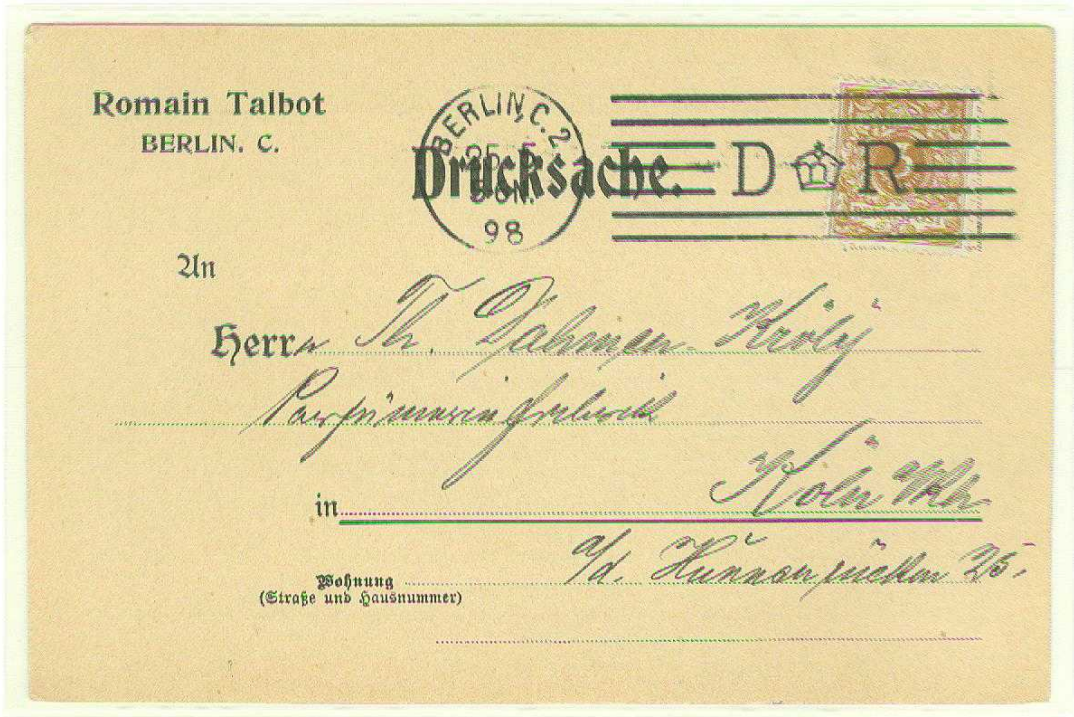 Romain Talbot
BERLIN. C.
BERLIN, C. 2
25 5
98
Drucksache.
D R
3
An
Herrn Th. Dahmen-Króly
Parfümeriefabrik
in Köln Rh
a/d. Hunnenrücken 25.
Wohnung
(Straße und Hausnummer)